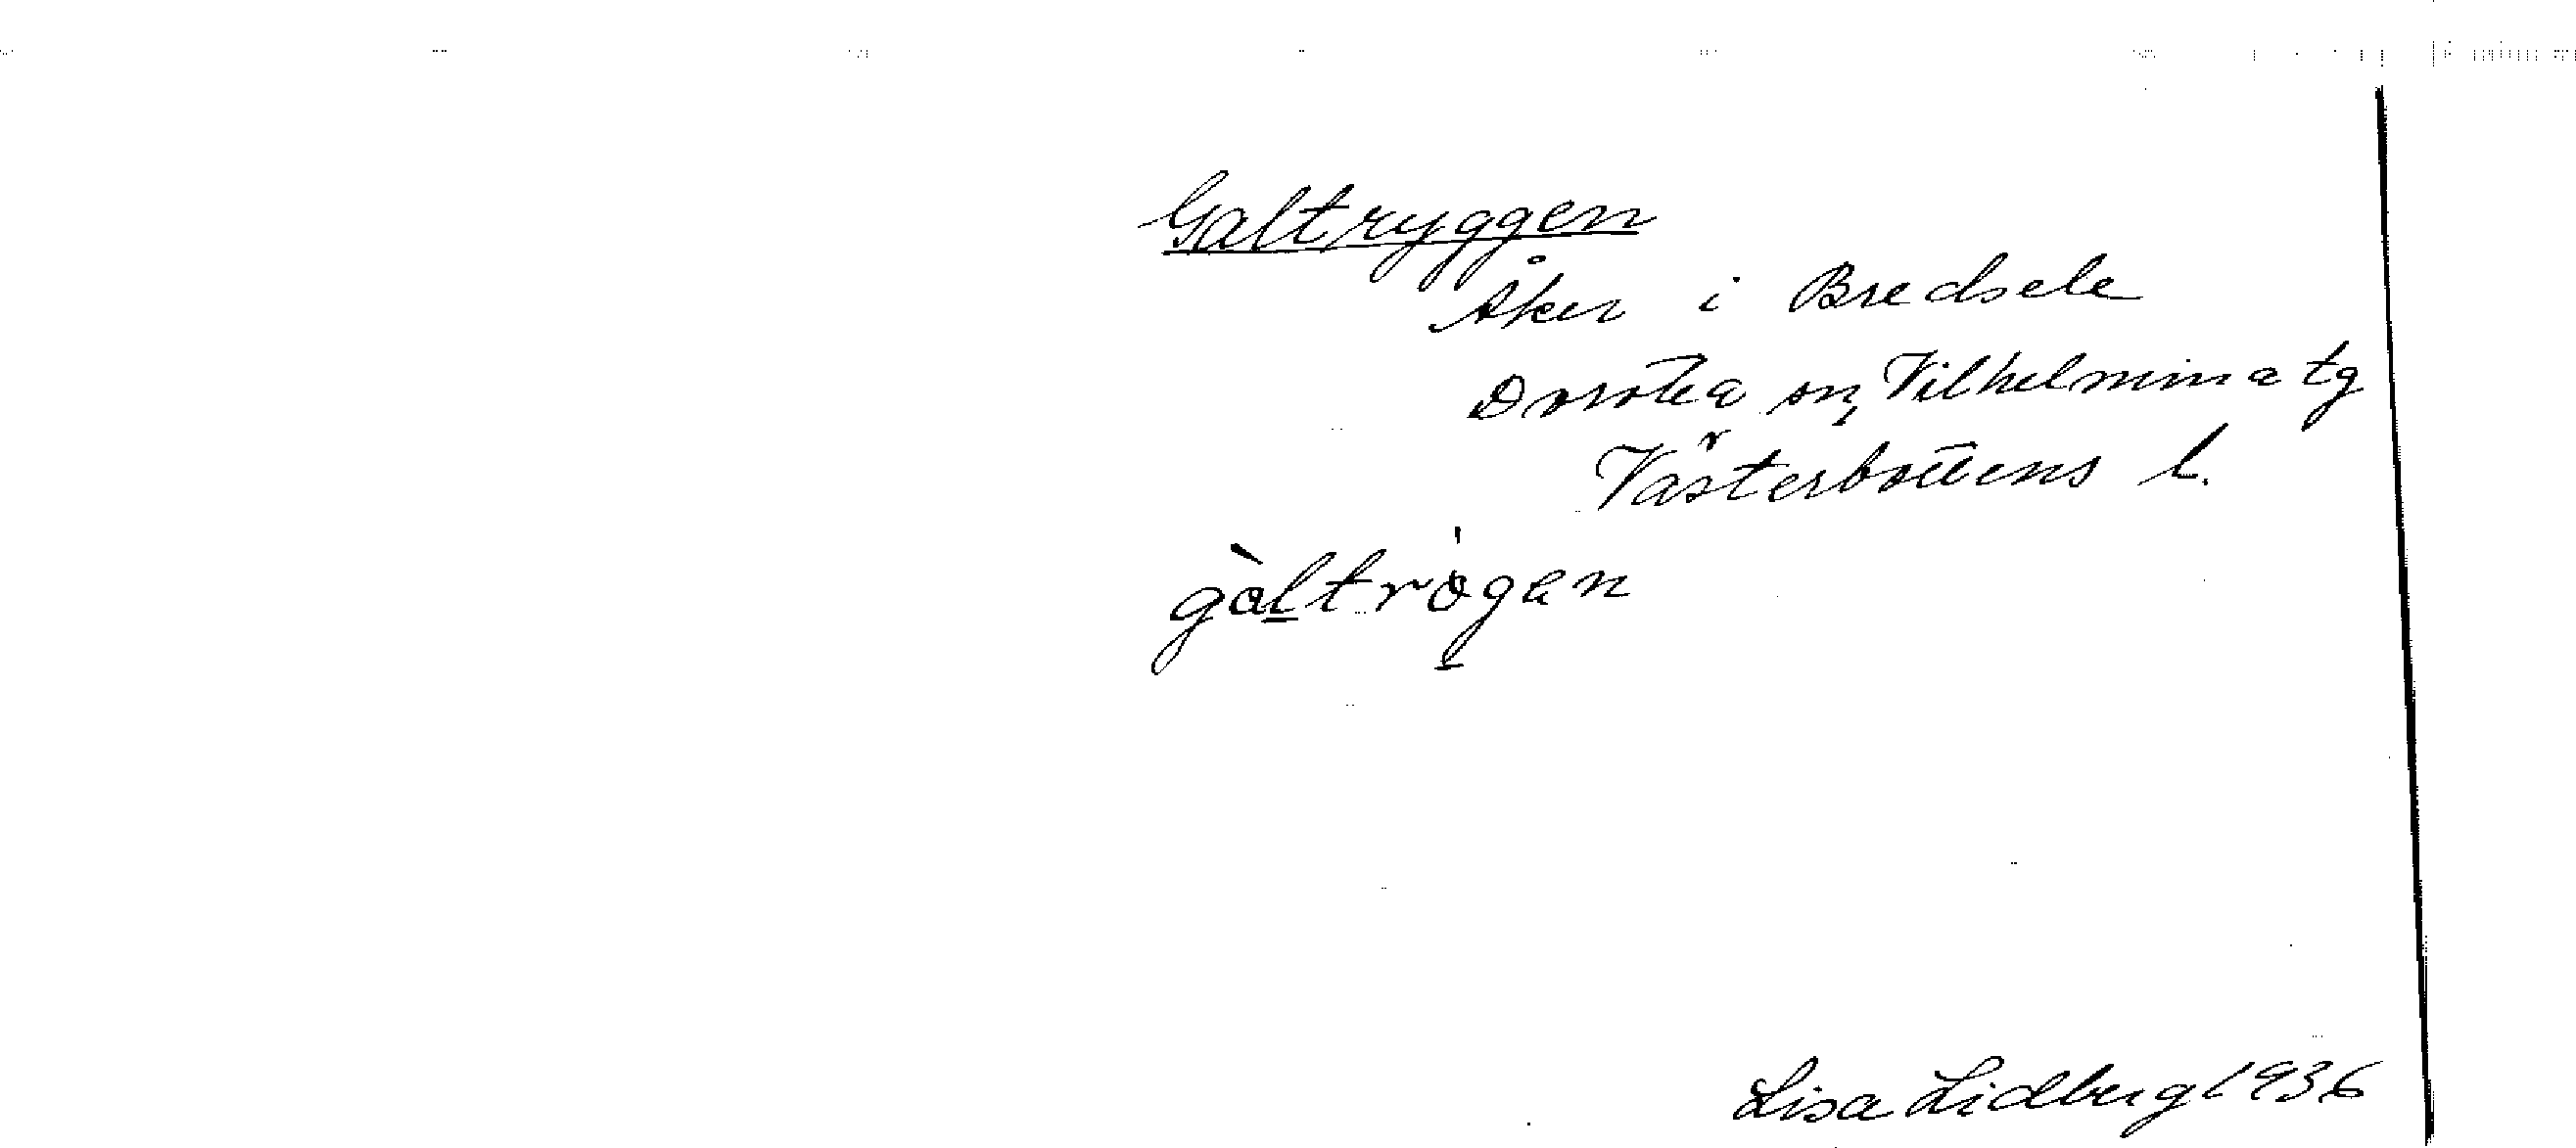 Galtryggen
Åker i Bredsele
Dorotea sn, Vilhelmina tg
Västerbottens l.
gàl̲trøgen
Lisa Lidberg 1936